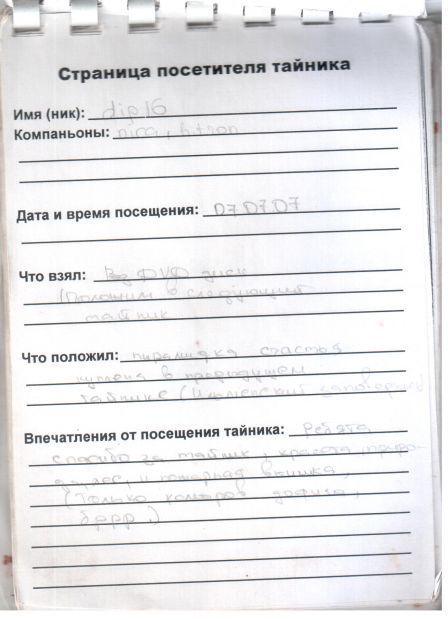 Страница посетителя тайника
Имя (ник): dip16
Компаньоны: nica,
Дата и время посещения: 07.07.07
Что взял: DVD диск
(Положим в следующий
тайник
Что положил: пирамидка счастья
в предыдущем
тайнике (
Впечатления от посещения тайника: Ребята
спасибо за тайник, красота,
лес, и пожарная вышка,
(Только комаров дофига,
бррр.)